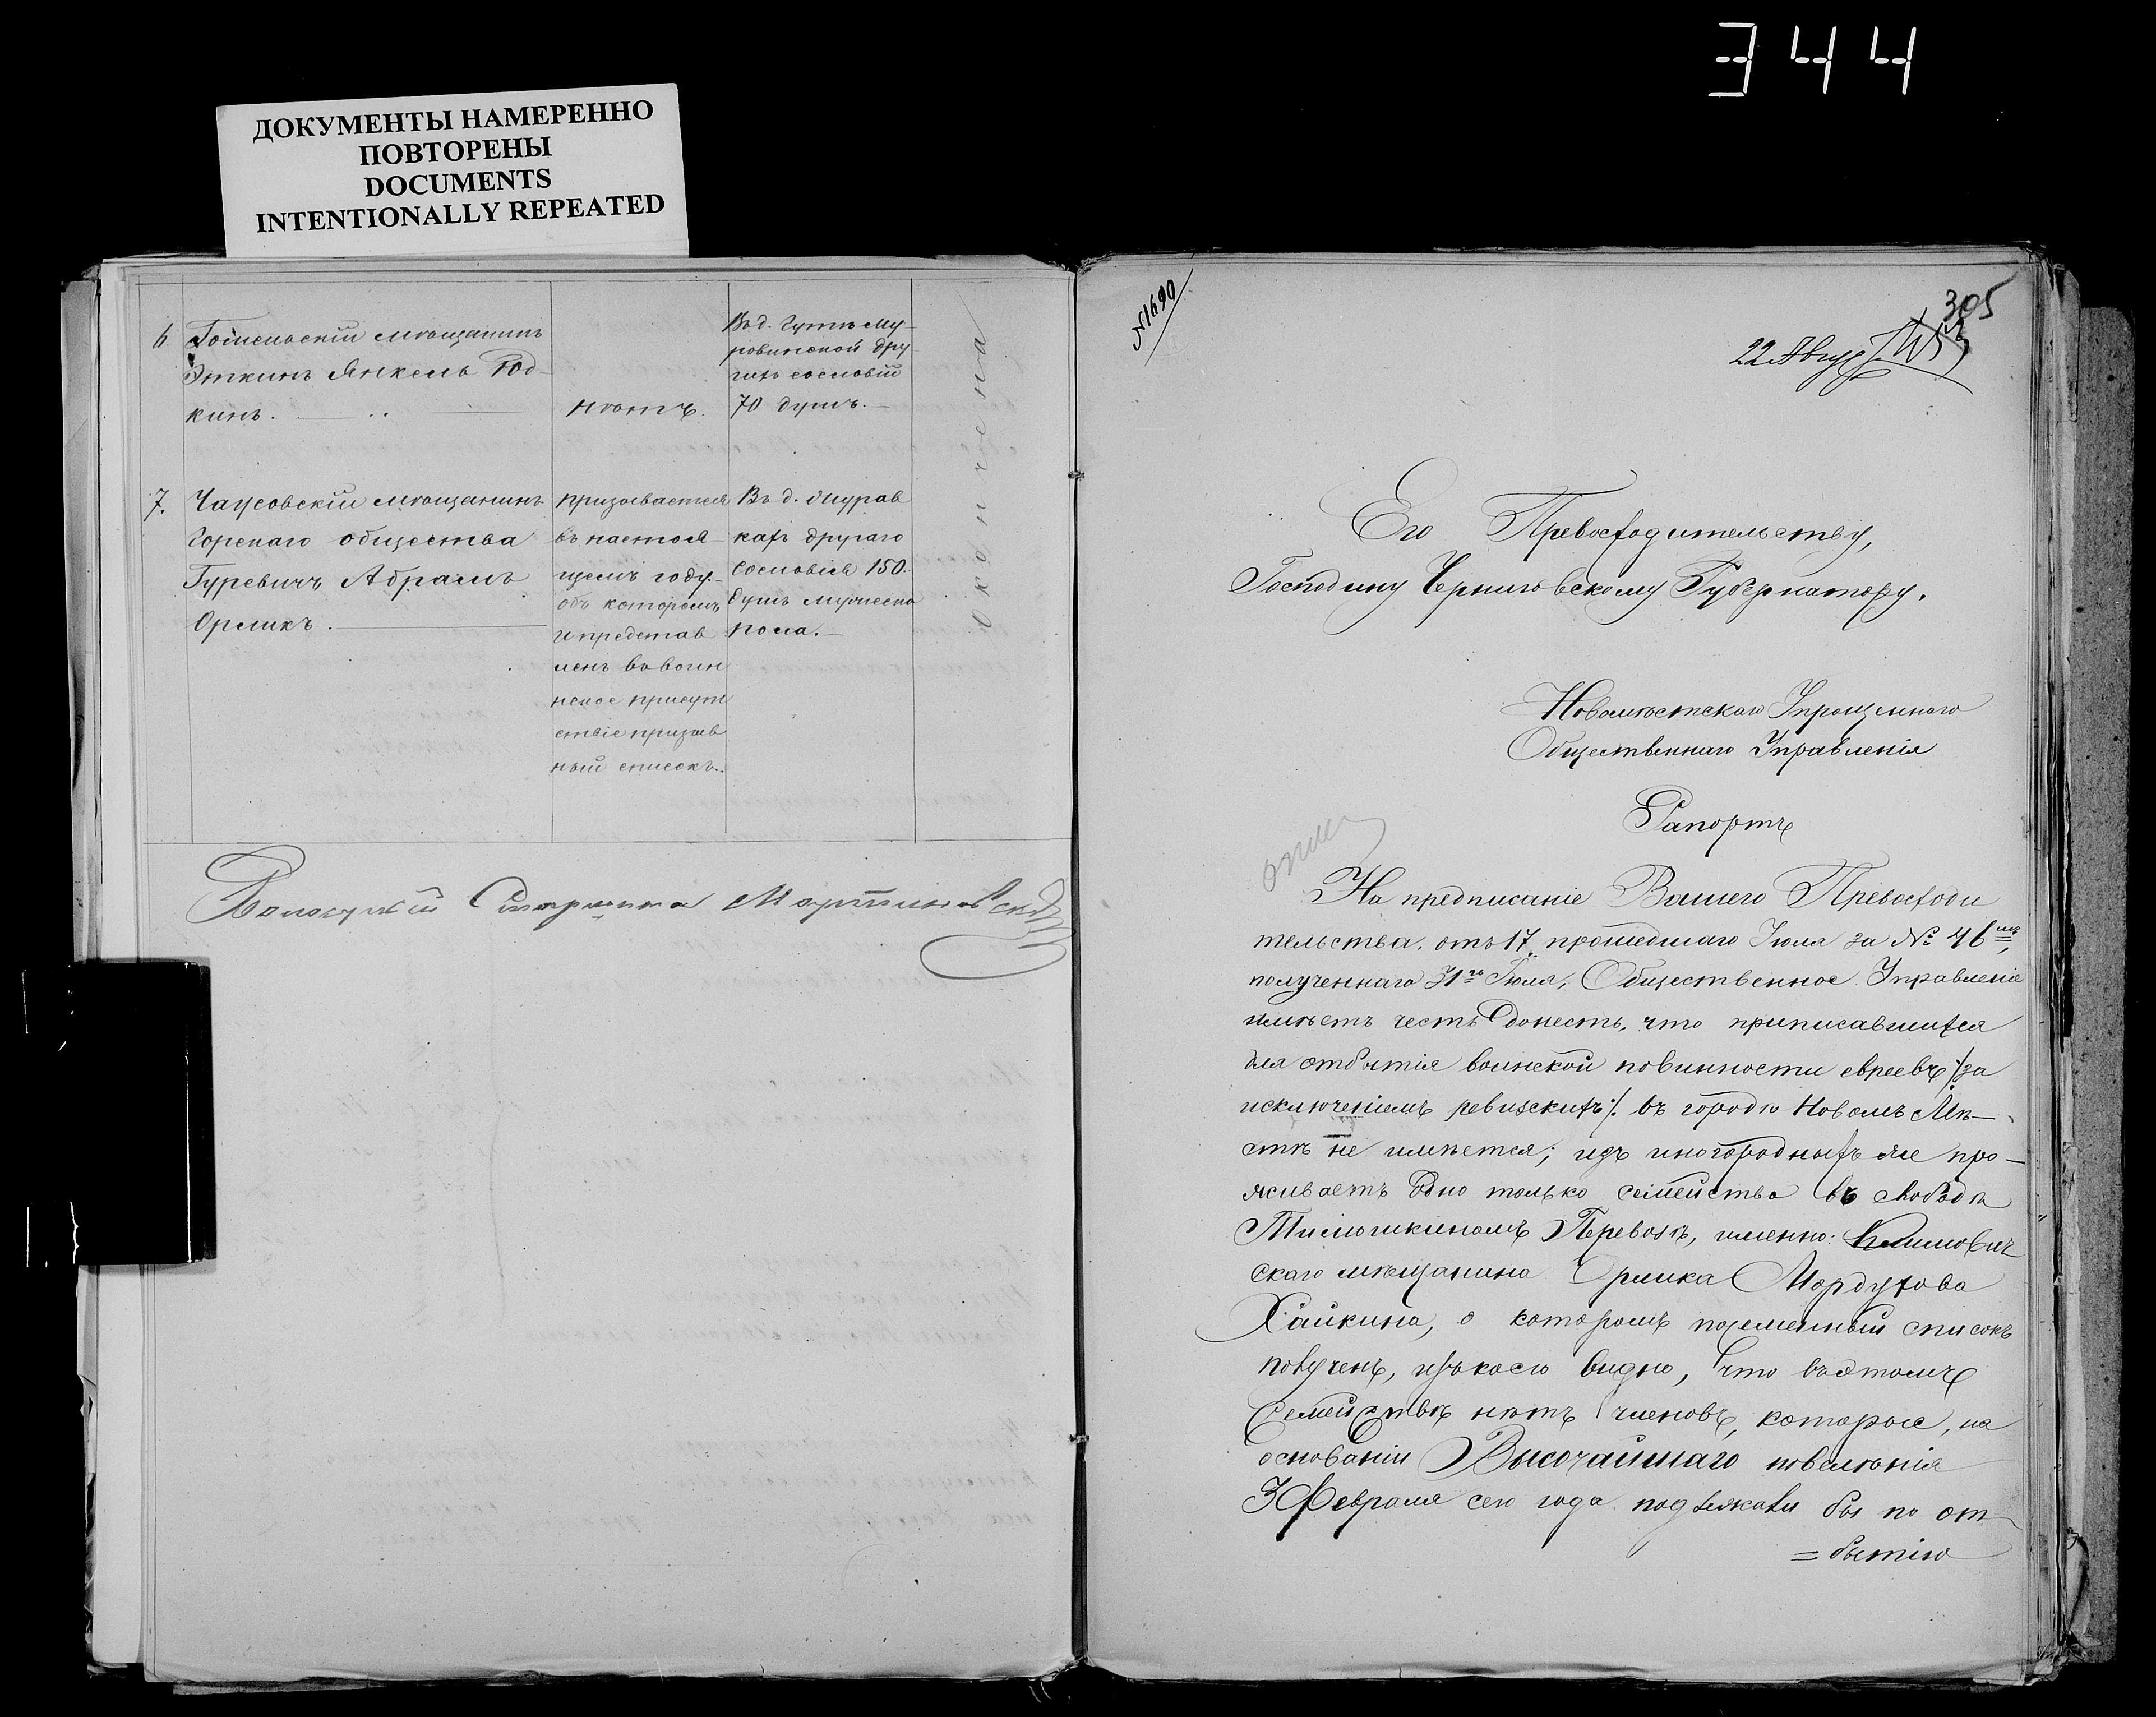 344
ДОКУМЕНТЫ НАМЕРЕННО
ПОВТОРЕНЫ
DOCUMENTS
INTENTIONALLY REPEATED
6. Гомельскій мѣщанинъ
Эткинъ Янкель Юд-
кинъ.
нѣтъ.
Въ д. Гутѣ Му-
ровинской дру
гихъ сословій
70 душъ.—
7. Чаусовскій мѣщанинъ
Горскаго общества
Гуревичъ Абрамъ
Орликъ.
призывается
въ настоя-
щемъ году.-
объ которомъ
и представ
ленъ въ воин
ское присут
ствіе призыв
ный списокъ..
Въ д. Мурав
кахъ другаго
сословія 150.
душъ мужеска
пола.—
окончена
Волостной Старшина Мартиновскій
№ 1690
305
22 Август
Его Превосходительству,
Господину Черниговскому Губернатору.
Новомѣстскаго Упрощеннаго
Общественнаго Управленія
Рапортъ
На предписаніе Вашего Превосходи
тельства. отъ 17 прошедшаго Іюля за № 46
полученнаго 31го Іюля, Общественное Управленіе
имѣетъ честь донесть, что приписавшихся
для отбытія воинской повинности евреевъ /за
исключеніемъ ревизскихъ/. въ городѣ Новомъ Мѣ—
стѣ не имѣется; изъ иногородныхъ же про—
живаетъ одно только семейство въ слободѣ
Перевозѣ, именно: Климович
скаго мѣщанина Орлика Мордухова
Хайкина, о которомъ посемейный списокъ
полученъ, изъ коего видно, что въ этомъ
семействѣ нѣтъ членовъ, которые, на
основаніи Высочайшаго повелѣнія
3 Февраля сего года подлежали бы по от
=бытію